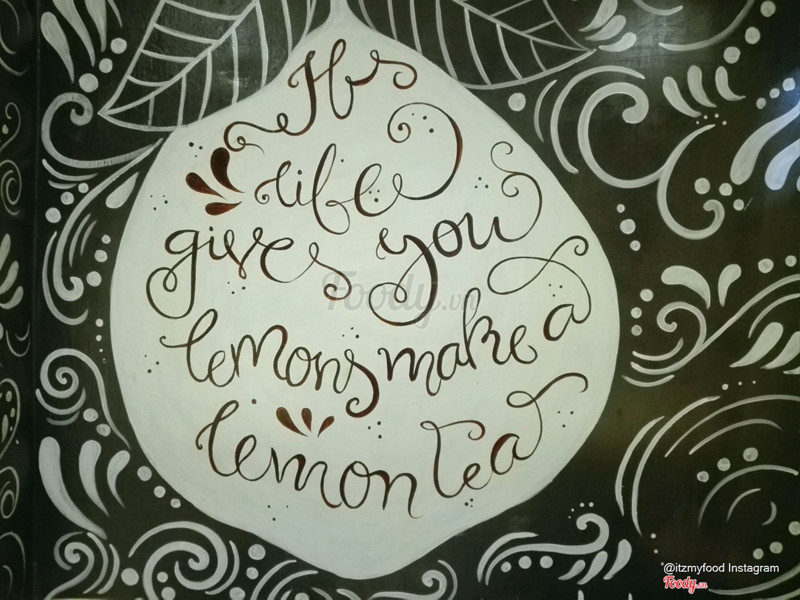 If
life
gives you
lemons make a
lemon tea
Foody.vn
@itzmyfood Instagram
Foody.vn